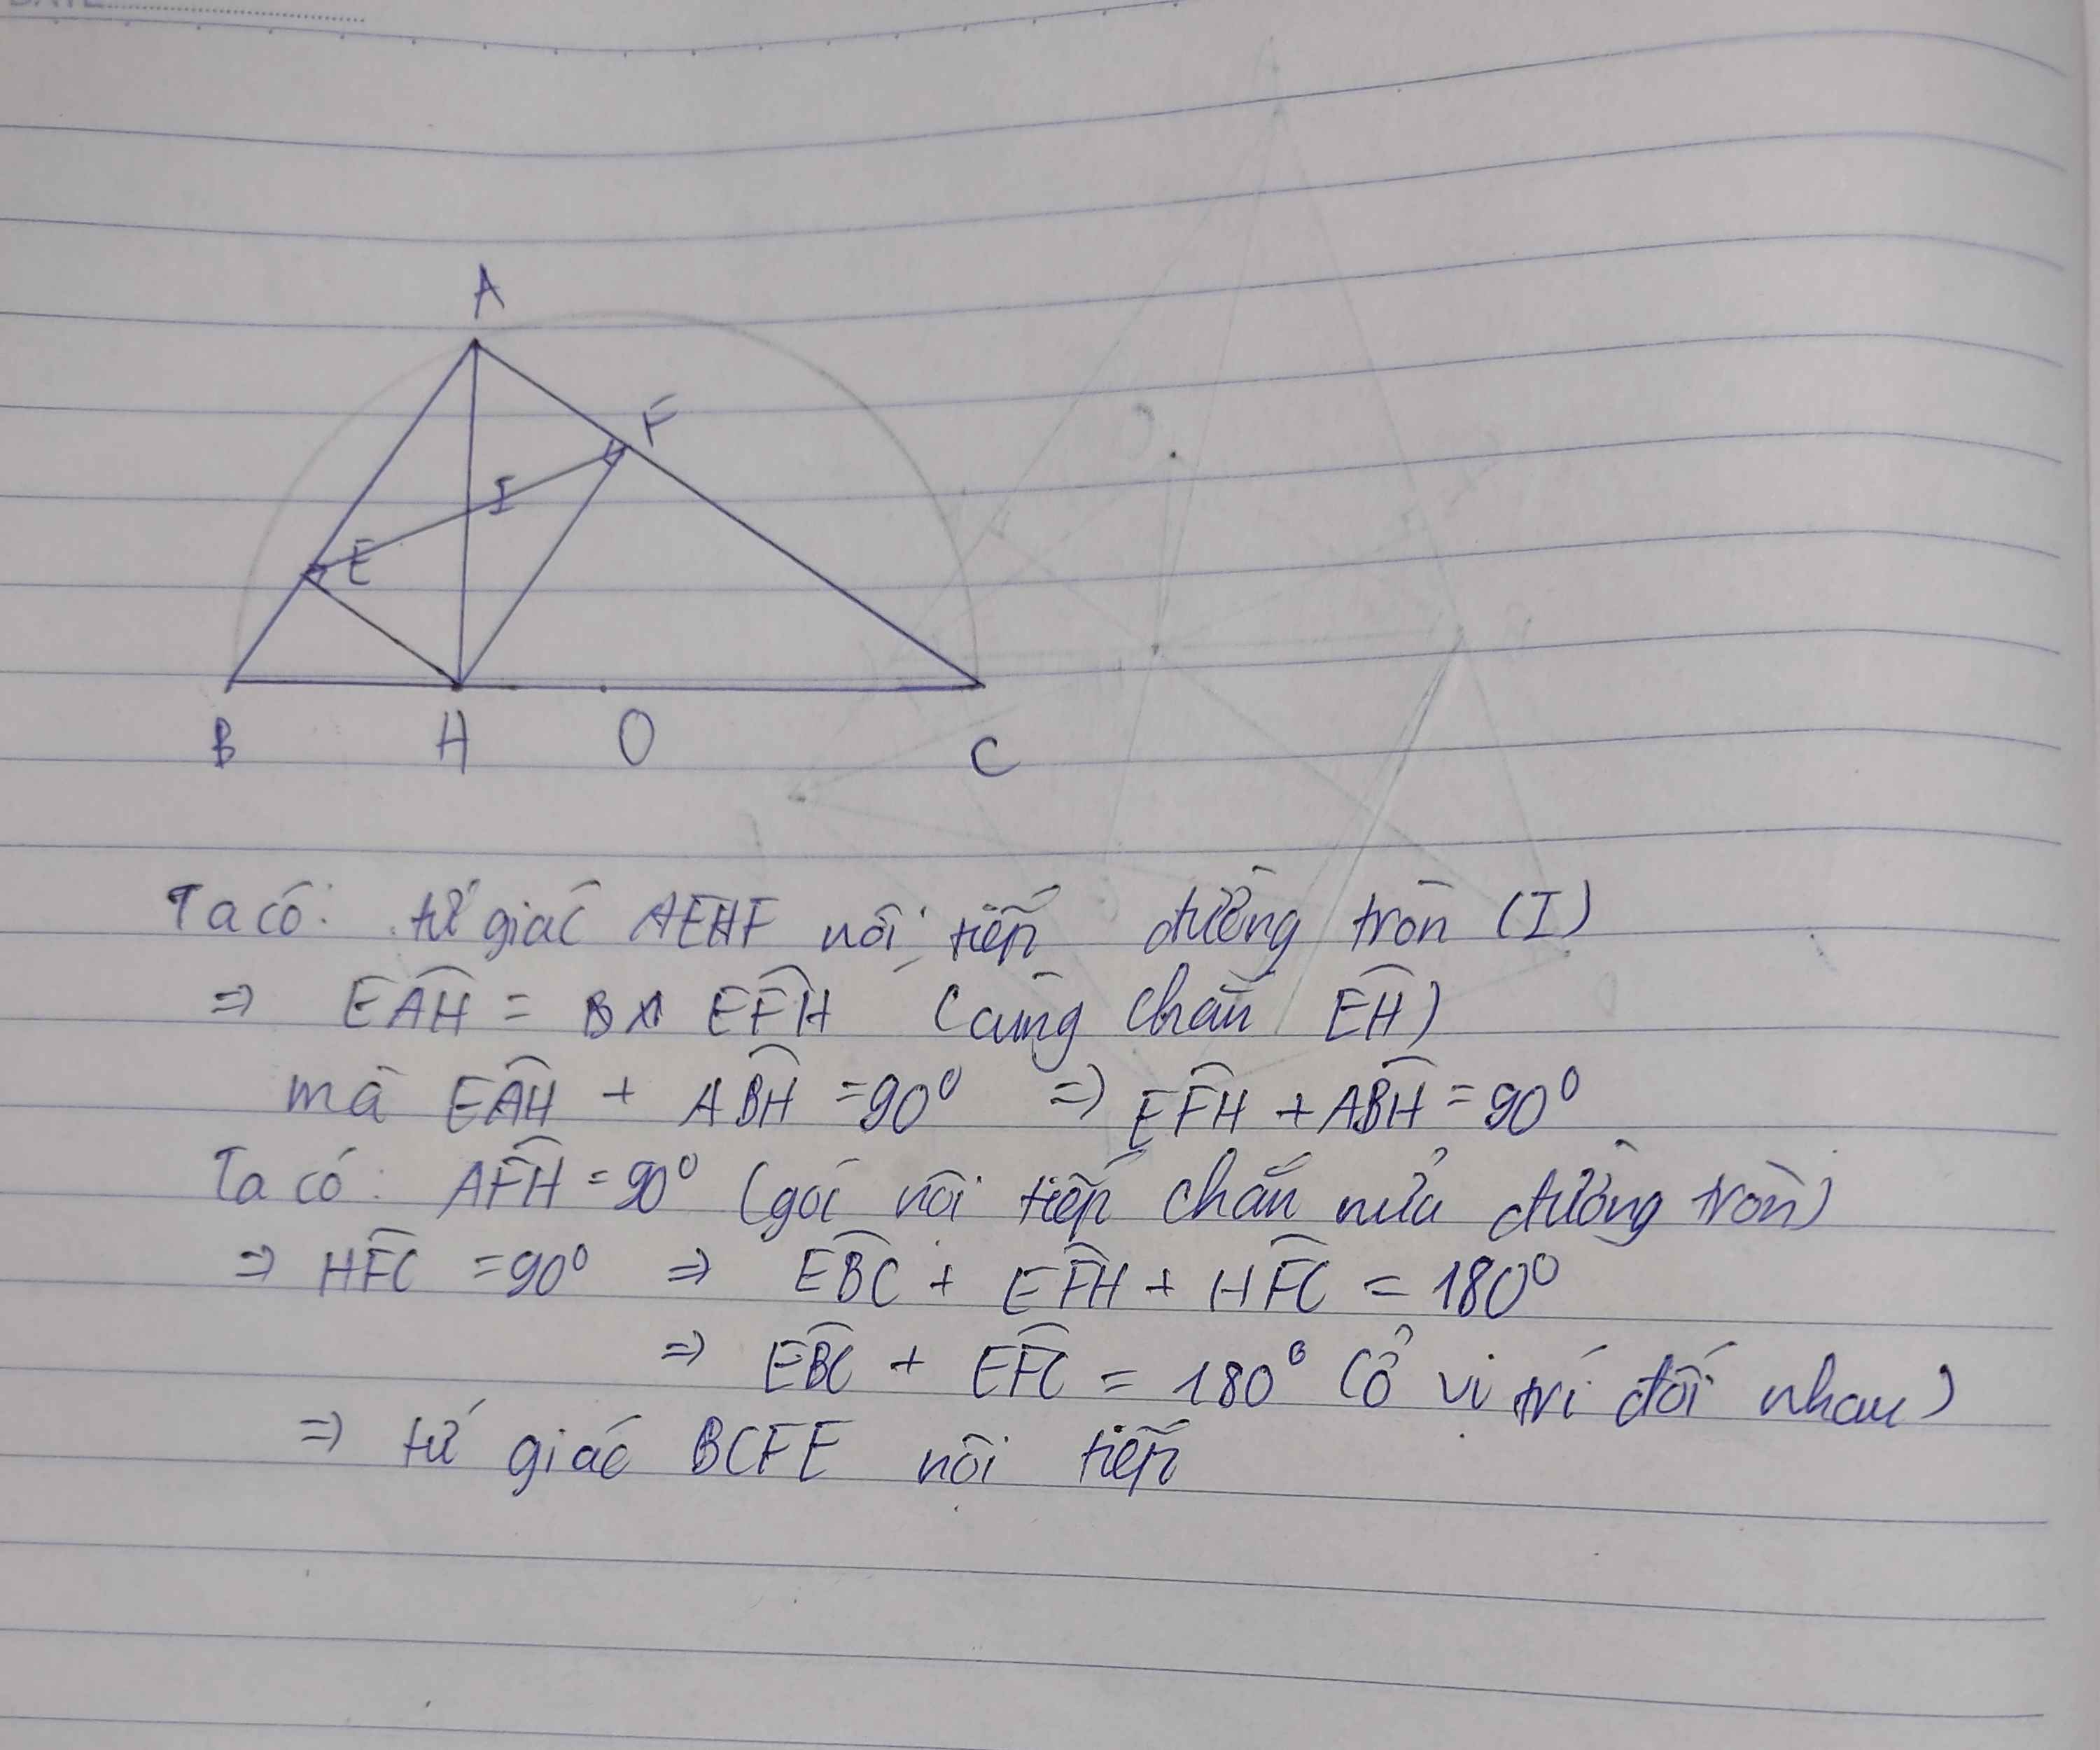 DATE
A
F
I
E
B H O C
Ta có: tứ giác AEHF nội tiếp đường tròn (I)
=> EAH = EFH (cùng chắn EH)
mà EAH + ABH = 90° => EFH + ABH = 90°
Ta có: AFH = 90° (góc nội tiếp chắn nửa đường tròn)
=> HFC = 90° => EBC + EFH + HFC = 180°
=> EBC + EFC = 180° (ở vị trí đối nhau)
=> tứ giác BCFE nội tiếp